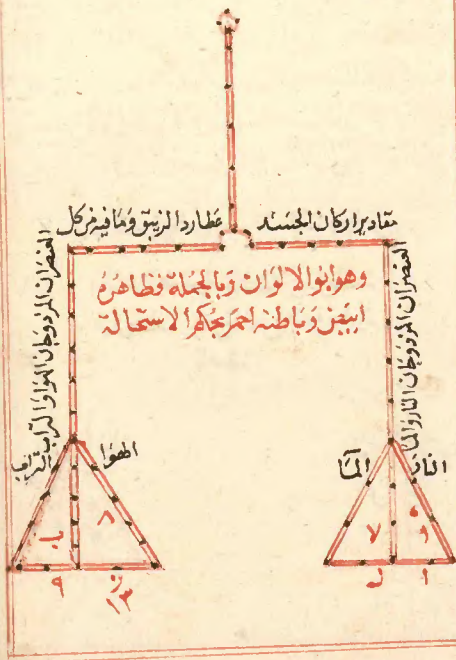 مقادير اركان الجسد
عطارد الزيبق وما فيه من كل
وهو ابو الالوان وبالجملة فظاهره
ابيض وباطنه احمر بحكم الاستحالة
العنصران المزدوجان النار والما
العنصران المزدوجان الهوا والتراب
النار
المآ
الهوا
التراب
٧
٨
٩
١٣